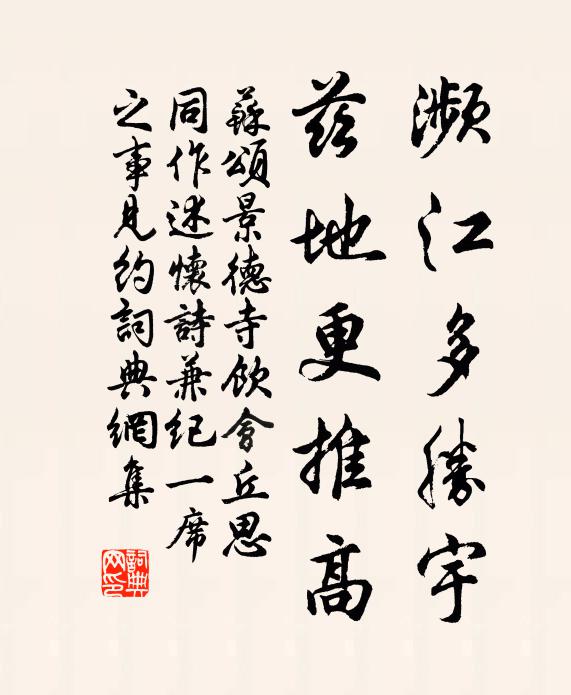 瀕江多勝宇
茲地更推高
蘇頌景德寺飲會丘思
同作述懷詩兼紀一席
之事見約詞典網集
詞典網印